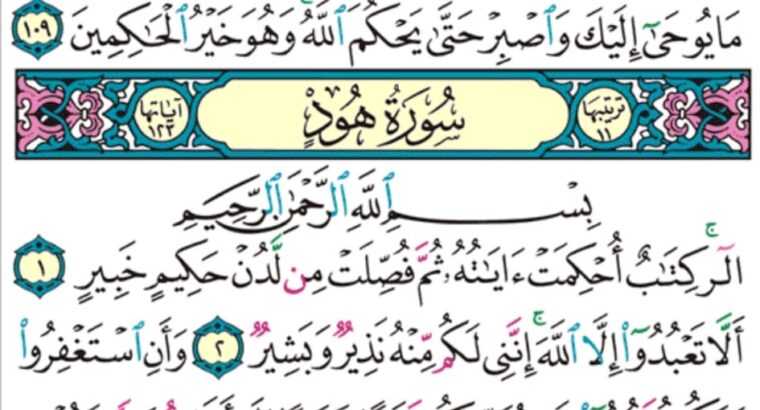 مَا يُوحَىٰٓ إِلَيْكَ وَٱصْبِرْ حَتَّىٰ يَحْكُمَ ٱللَّهُ وَهُوَ خَيْرُ ٱلْحَٰكِمِينَ ١٠٩
ترتيبها ١١ سُورَةُ هُودٍ آياتها ١٢٣
بِسْمِ ٱللَّهِ ٱلرَّحْمَٰنِ ٱلرَّحِيمِ
الٓر ۚ كِتَٰبٌ أُحْكِمَتْ ءَايَٰتُهُۥ ثُمَّ فُصِّلَتْ مِن لَّدُنْ حَكِيمٍ خَبِيرٍ ١
أَلَّا تَعْبُدُوٓا۟ إِلَّا ٱللَّهَ ۚ إِنَّنِى لَكُم مِّنْهُ نَذِيرٌ وَبَشِيرٌ ٢ وَأَنِ ٱسْتَغْفِرُوا۟